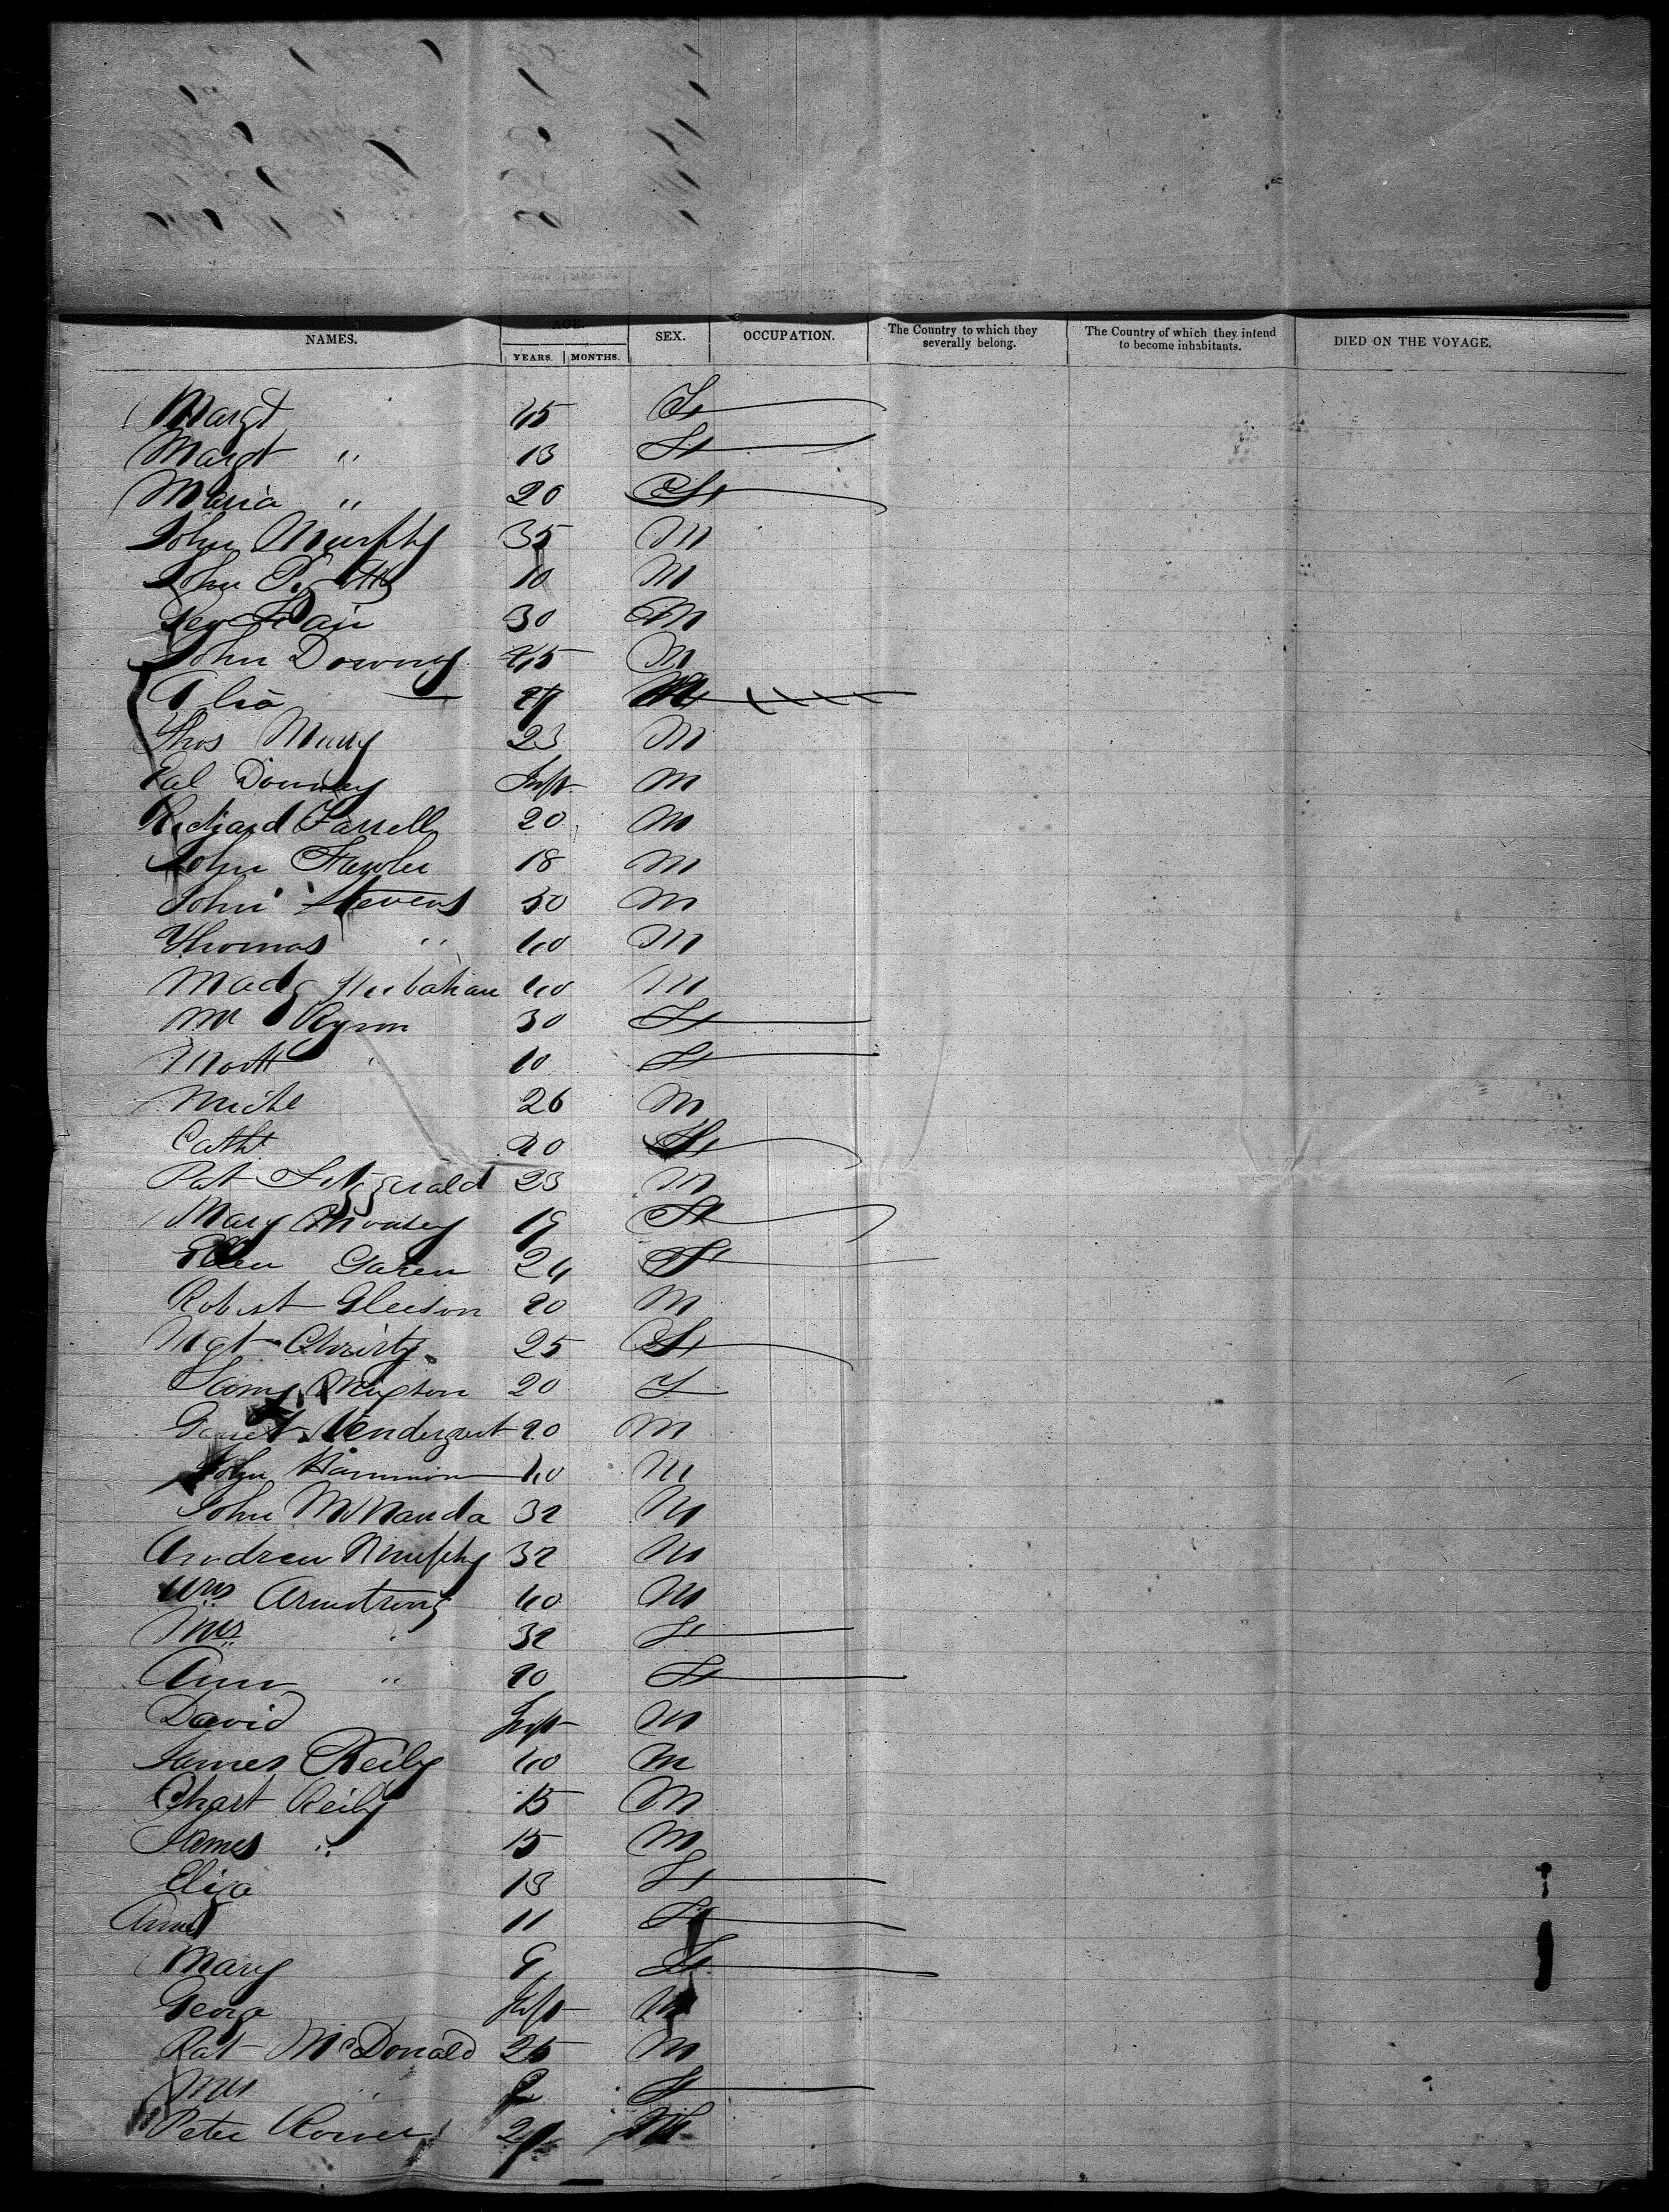 NAMES. AGE. SEX. OCCUPATION. The Country to which they severally belong. The Country of which they intend to become inhabitants. DIED ON THE VOYAGE.
YEARS. MONTHS.
Margt 45 F
Margt " 13 F
Maria " 20 F
John Murphy 35 M
John 10 M
30 M
John Downey 45 M
27
Thos Murry 23 M
Pat Downey Inft M
Richard Farrell 20 M
John Fowler 18 M
John Stevens 50 M
Thomas " 40 M
40 M
Ryan 30 F
10 F
Michl 26 M
Cath 20 F
Pat Fitzgerald 23 M
Mary Mooney 19 F
Ellen 24 F
Robert Gleeson 20 M
Mgt Christy 25 F
20 F
Garret Pendergart 20 M
John 40 M
John 32 M
Andrew Murphy 32 M
Wm Armstrong 40 M
Mrs " 32 F
Ann " 20 F
David Inft M
James Reily 40 M
Chast Reily 15 M
James " 15 M
Eliza 13 F
Anne 11 F
Mary 9 F
George Inft M
Pat McDonald 25 M
Mrs " F
Peter M